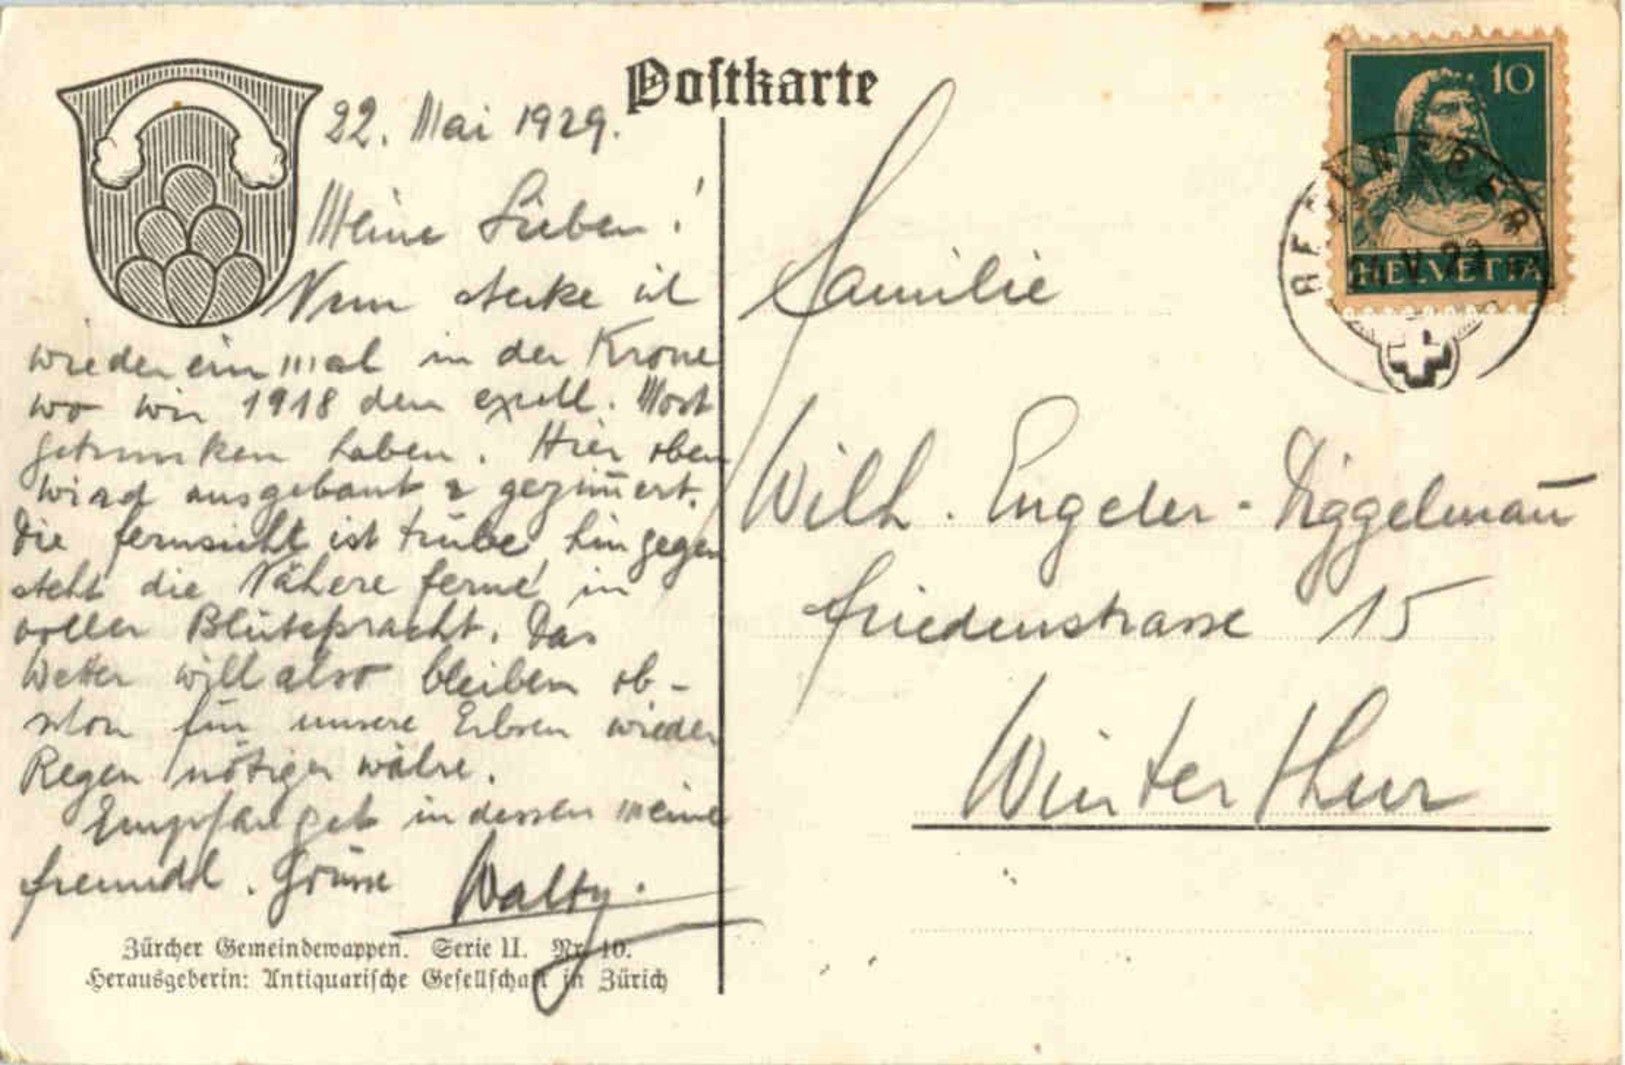 Postkarte
22. Mai 1929.
Meine Lieben!
Nun stecke ich
wieder ein mal in der Krone
wo wir 1918 den exzell. Most
getrunken haben. Hier oben
wird ausgebaut & gezim̅ert.
Die Fernsicht ist trübe, hingegen
steht die "Nähere ferne" in
voller Blütepracht. Das
Wetter will also bleiben ob-
schon für unsere Erbsen wieder
Regen nötiger währe.
Empfanget indessen meine
freundl. Grüsse Walty.
Zürcher Gemeindewappen. Serie II. Nr. 10.
Herausgeberin: Antiquarische Gesellschaft in Zürich
10
HELVETIA
Familie
Wilh. Engeler-Diggelman̅
Friedenstrasse 15
Winterthur